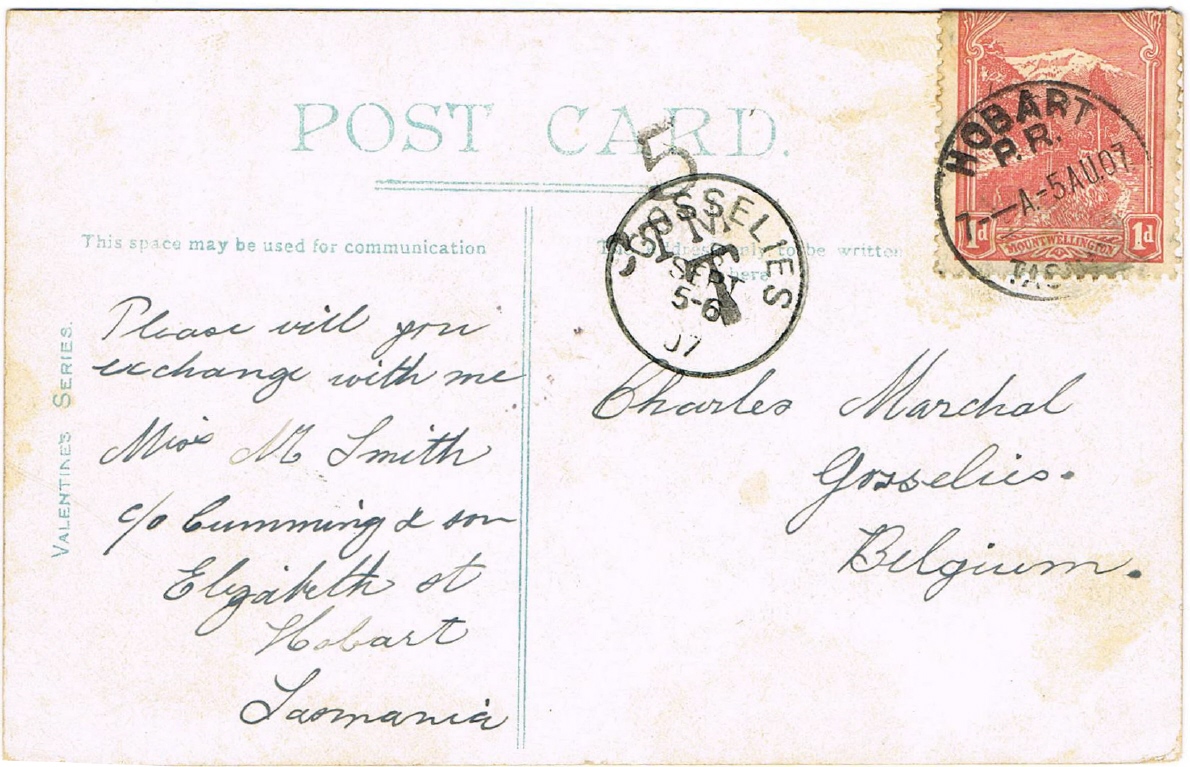 POST CARD.
This space may be used for communication
to be written
here
VALENTINE'S SERIES.
Please will you
exchange with me
Miss M Smith
c/o Cumming & son
Elizabeth st
Hobart
Tasmania
Charles Marchal
Gosselies.
Belgium.
HOBART
P.R.
7-—A-5AU07
TAS
1d MOUNT WELLINGTON 1d
5
GOSSELIES
SEPT
5-6
07